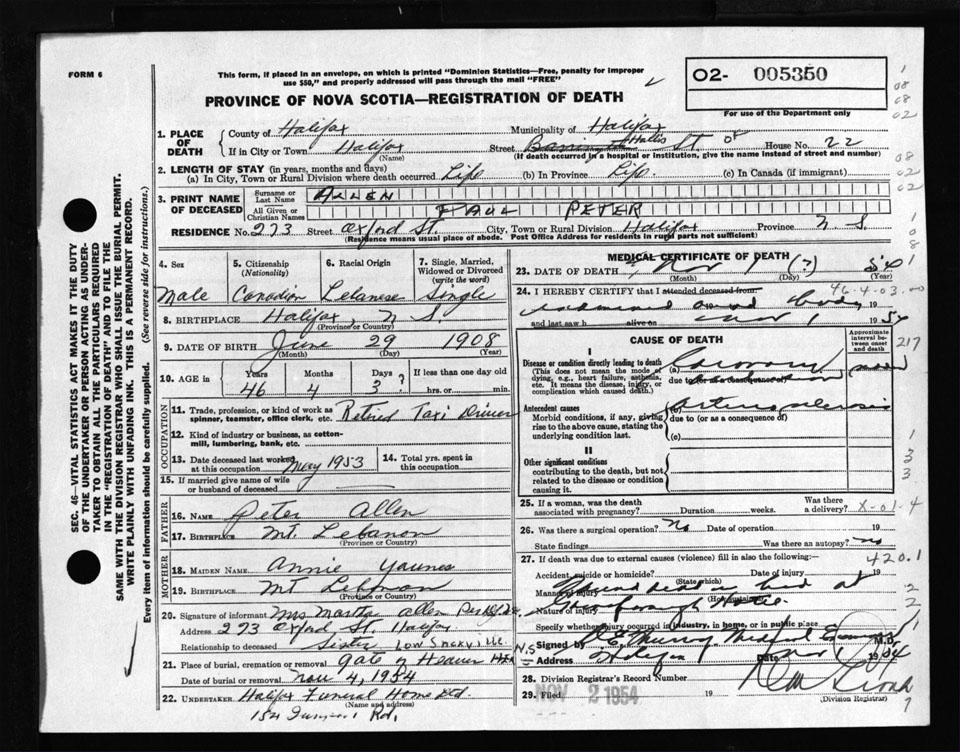 FORM 6
This form, if placed in an envelope, on which is printed "Dominion Statistics—Free, penalty for improper
use $50," and properly addressed will pass through the mail "FREE"
O2- 005350
For use of the Department only
PROVINCE OF NOVA SCOTIA—REGISTRATION OF DEATH
1. PLACE OF DEATH
County of Halifax Municipality of Halifax
If in City or Town Halifax (Name) Street Barrington Hollis St. or House No. 22
(If death occurred in a hospital or institution, give the name instead of street and number)
2. LENGTH OF STAY (in years, months and days)
(a) In City, Town or Rural Division where death occurred Life (b) In Province Life (c) In Canada (if immigrant)
3. PRINT NAME OF DECEASED
Surname or Last Name ALLEN
All Given or Christian Names PAUL PETER
RESIDENCE No. 273 Street Oxford St. City, Town or Rural Division Halifax Province N.S.
(Residence means usual place of abode. Post Office Address for residents in rural parts not sufficient)
4. Sex Male
5. Citizenship (Nationality) Canadian
6. Racial Origin Lebanese
7. Single, Married, Widowed or Divorced (write the word) Single
8. BIRTHPLACE Halifax, N.S.
(Province or Country)
9. DATE OF BIRTH June 29 1908
(Month) (Day) (Year)
10. AGE in Years 46 Months 4 Days 3? If less than one day old hrs. or min.
OCCUPATION
11. Trade, profession, or kind of work as spinner, teamster, office clerk, etc. Retired Taxi Driver
12. Kind of industry or business, as cotton-mill, lumbering, bank, etc.
13. Date deceased last worked at this occupation May 1953
14. Total yrs. spent in this occupation
15. If married give name of wife or husband of deceased
FATHER
16. NAME Peter Allen
17. BIRTHPLACE Mt. Lebanon
(Province or Country)
MOTHER
18. MAIDEN NAME Annie Younes
19. BIRTHPLACE Mt Lebanon
(Province or Country)
20. Signature of informant Mrs Martha Allen
Address 273 Oxford St. Halifax
Relationship to deceased Sister Low Sackville
N.S
21. Place of burial, cremation or removal Gate of Heaven
Date of burial or removal Nov 4, 1954
22. UNDERTAKER Halifax Funeral Home Ltd.
(Name and address)
SEC. 46—VITAL STATISTICS ACT MAKES IT THE DUTY
OF THE UNDERTAKER OR PERSON ACTING AS UNDER-
TAKER TO OBTAIN ALL THE PARTICULARS REQUIRED
IN THE "REGISTRATION OF DEATH" AND TO FILE THE
SAME WITH THE DIVISION REGISTRAR WHO SHALL ISSUE THE BURIAL PERMIT.
WRITE PLAINLY WITH UNFADING INK. THIS IS A PERMANENT RECORD.
Every item of information should be carefully supplied. (See reverse side for instructions.)
MEDICAL CERTIFICATE OF DEATH
23. DATE OF DEATH Nov 1 (?) 54
(Month) (Day)
24. I HEREBY CERTIFY that I attended deceased from
46-4-03
examined dead body 19
and last saw h alive on Nov 1 1954
CAUSE OF DEATH
Approximate interval between onset and death
I
Disease or condition directly leading to death
(This does not mean the mode of dying, e.g., heart failure, asthenia, etc. It means the disease, injury, or complication which caused death.)
(a) Coronary
due to (or as a consequence of)
Antecedent causes
Morbid conditions, if any, giving rise to the above cause, stating the underlying condition last.
(b) Arteriosclerosis
due to (or as a consequence of)
(c)
II
Other significant conditions
contributing to the death, but not related to the disease or condition causing it.
25. If a woman, was the death associated with pregnancy? Duration weeks. Was there a delivery? X-01-4
26. Was there a surgical operation? No Date of operation 19
State findings Was there an autopsy? No
27. If death was due to external causes (violence) fill in also the following:-
420.1
Accident, suicide or homicide? (State which) Date of injury 19
Manner of injury Found dead in bed at
(How sustained)
Nature of injury Hotel
Specify whether injury occurred in industry, in home, or in public place
Signed by Murray Medical M.D.
Address Halifax Date Nov 1 1954
28. Division Registrar's Record Number
29. Filed NOV 2 1954 19
(Division Registrar)